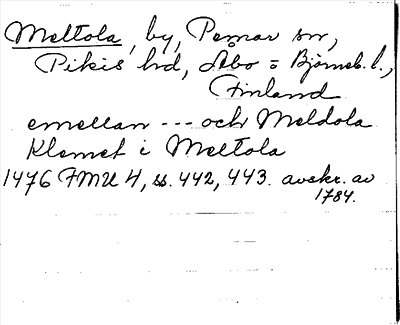 Meltola, by, Pemar sn,
Pikis hd, Åbo = Björneb. l.,
Finland
emellan --- och Meldola
Klemet i Meltola
1476 FMU 4, ss. 442, 443. avskr. av
1784.